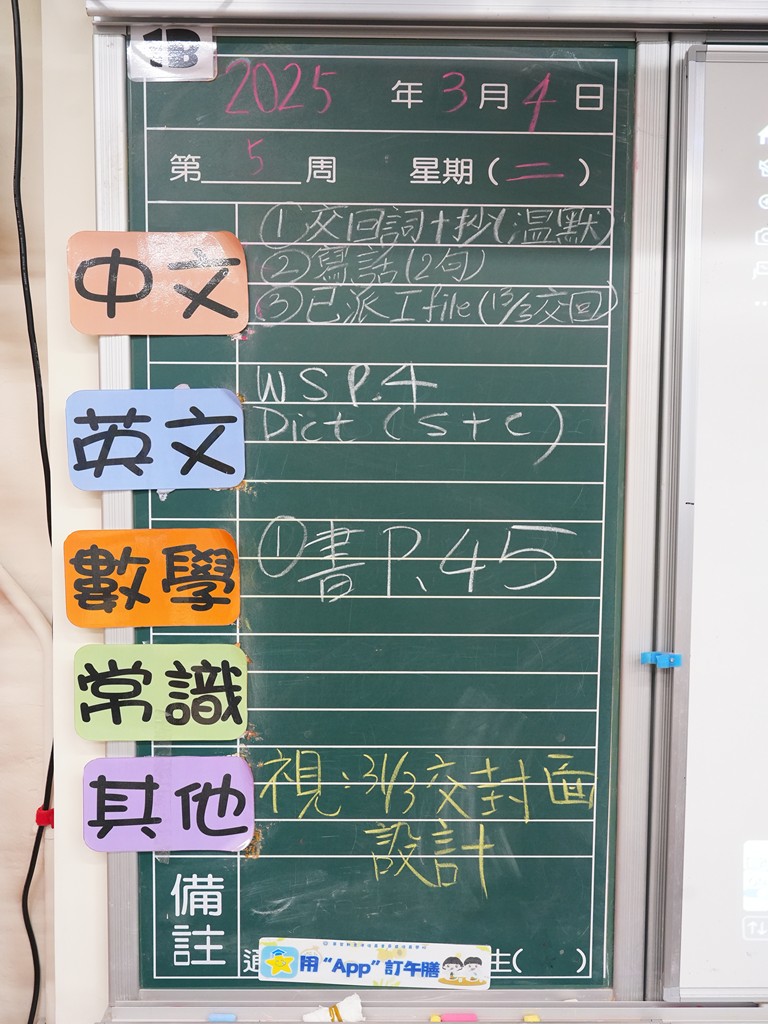 1B
2025 年 3 月 4 日
第 5 周 星期 ( 二 )
中文
①交回詞+抄(溫默)
②寫話(2句)
③已派工file(13/3交回)
英文
WS P.4
Dict (S+C)
數學
①書P.45
常識
其他
視:31/3交封面
設計
備註
用“App”訂午膳
生( )